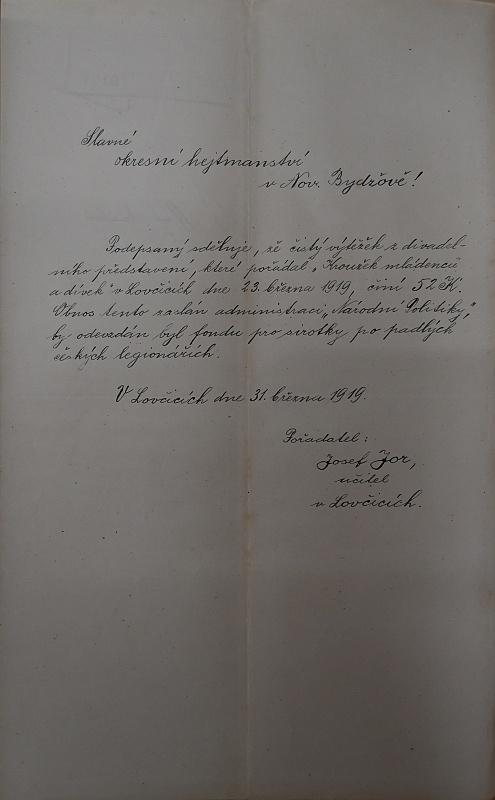 Slavné
okresní hejtmanství
v Nov. Bydžově!
Podepsaný sděluje, že čistý výtěžek z divadel-
ního představení, které pořádal „Kroužek mládenců
a dívek" v Lovčicích dne 23. března 1919, činí 52 K.
Obnos tento zaslán administraci „Národní Politiky,"
by odevzdán byl fondu pro sirotky po padlých
českých legionářích.
V Lovčicích dne 31. března 1919.
Pořadatel:
Josef Jor,
učitel
v Lovčicích.